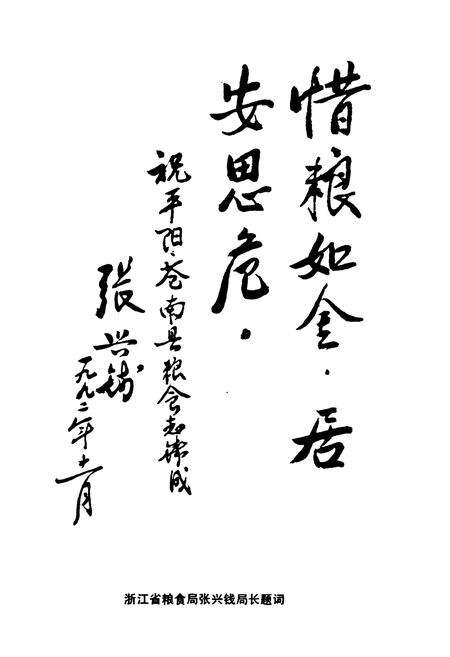 惜粮如金．居
安思危．
祝平阳、苍南县粮食志编成
张兴钱
一九九二年十一月
浙江省粮食局张兴钱局长题词